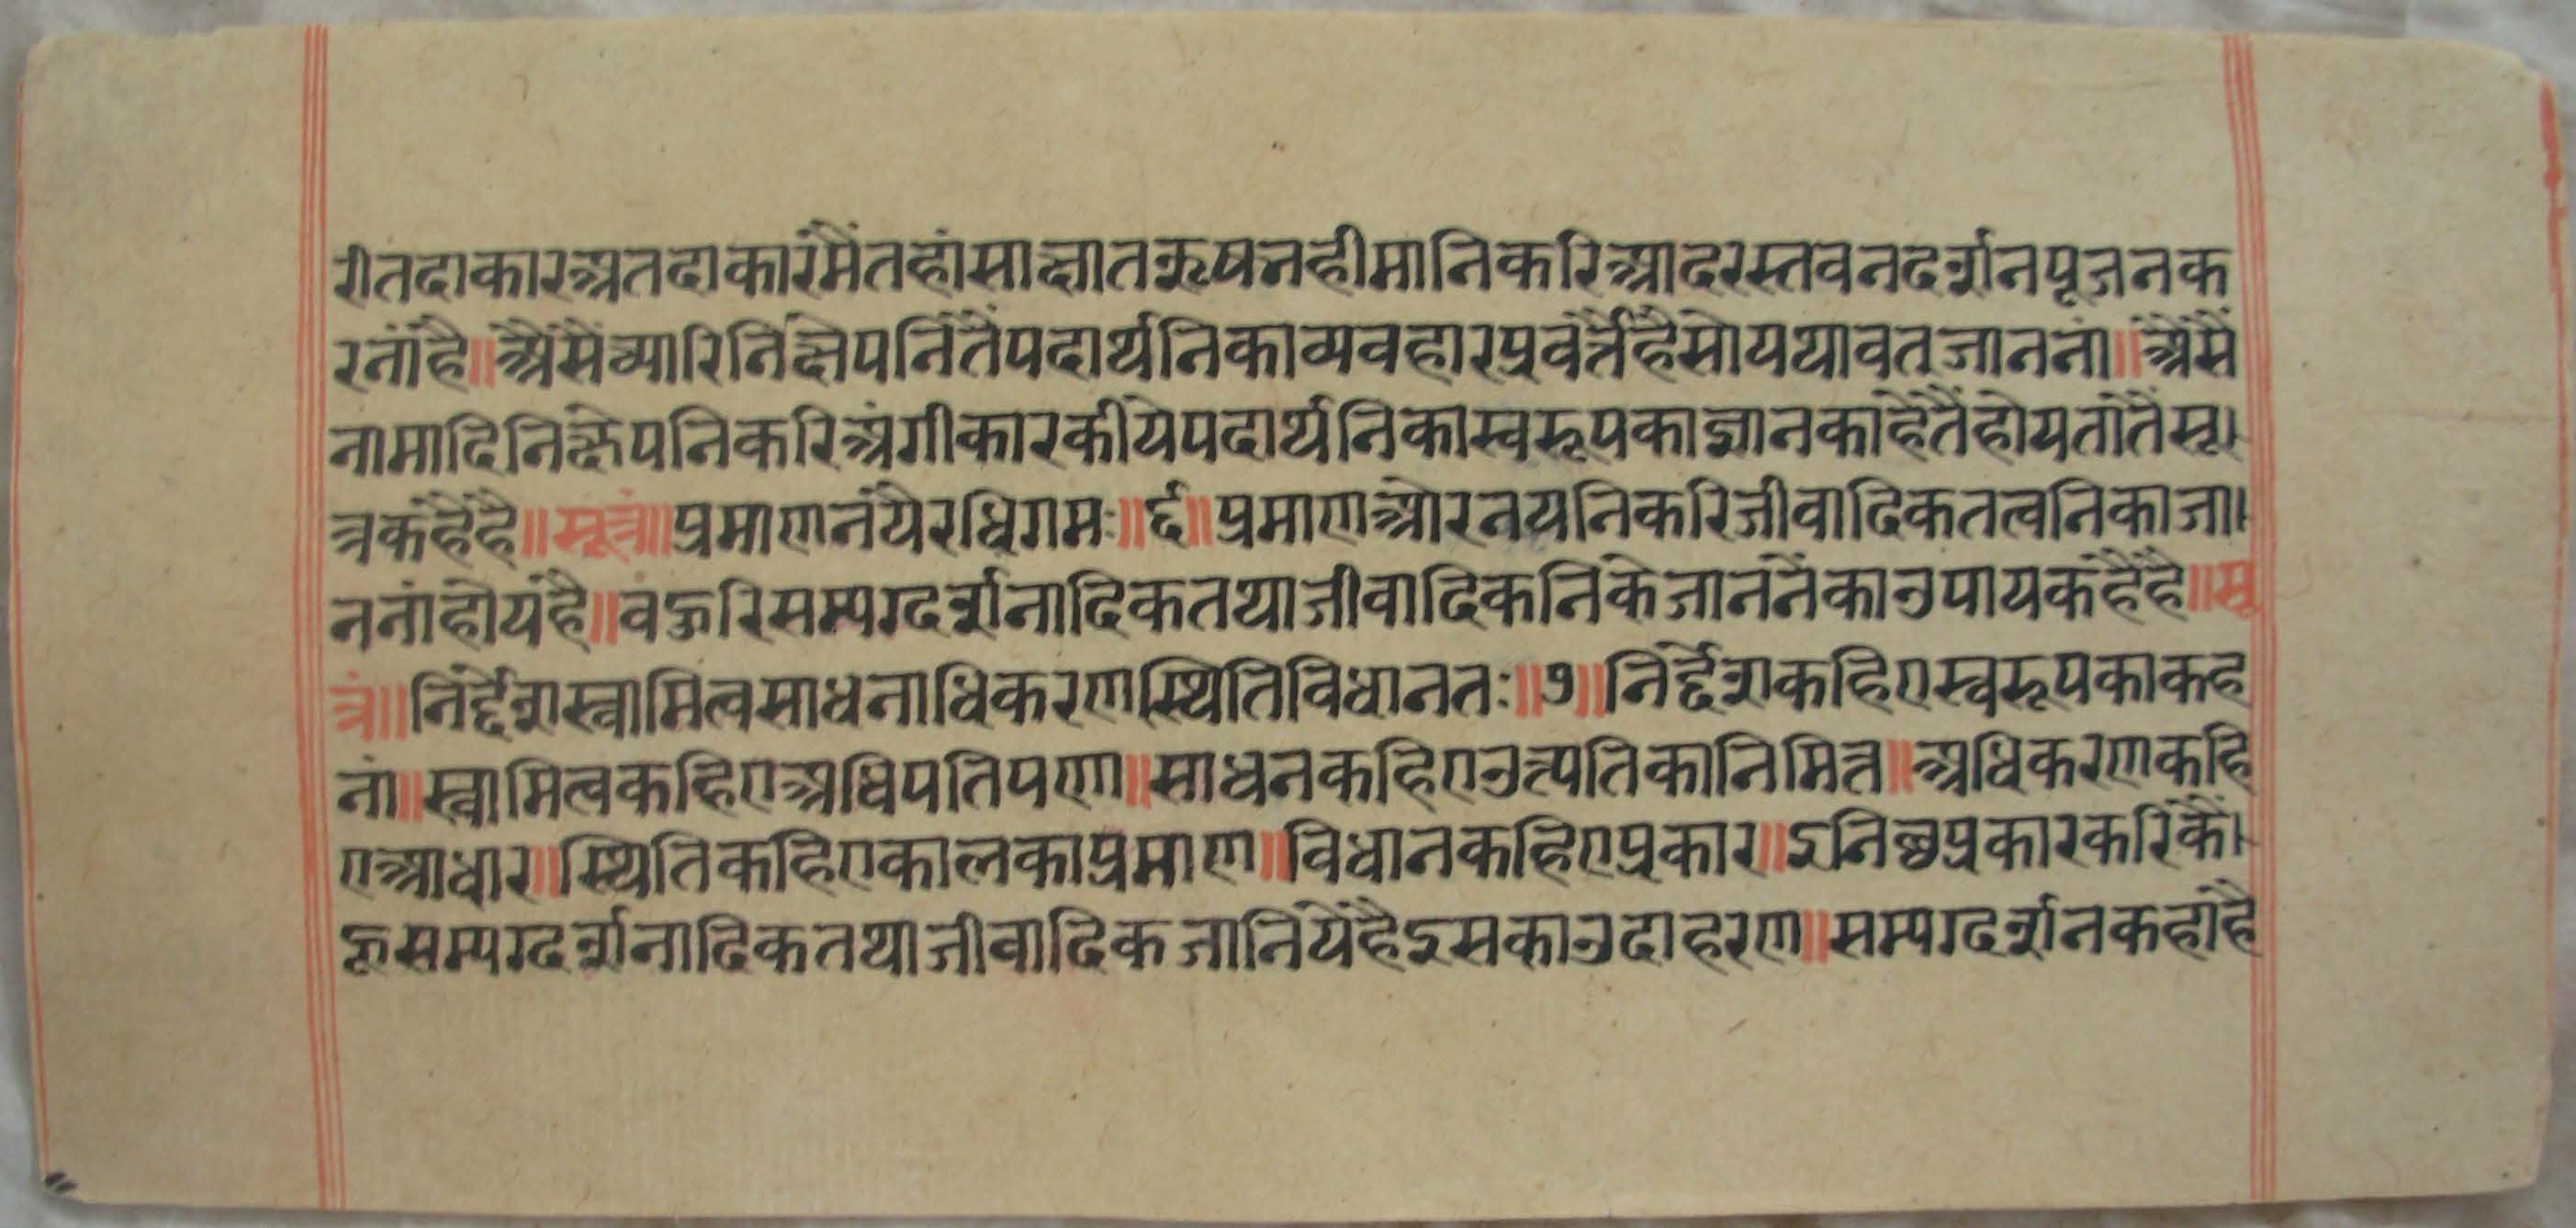 रीतदाकारअतदाकारमैंतहांसाक्षातऋषनहीमानिकरिआदरस्तवनदर्शनपूजनक
रनांहै॥अैंसैंच्यारिनिक्षेपनितैंपदार्थनिकाव्यवहारप्रवर्त्तैहैसोयथावतजाननां॥अैंसैं
नामादिनिक्षेपनिकरिअंगीकारकीयेपदार्थनिकास्वरूपकाज्ञानकाहेतैंहोयतातैंसू।
त्रकहैंहै॥सूत्रं॥प्रमाणनयैरधिगमः॥६॥प्रमाणओरनयनिकरिजीवादिकतत्वनिकाजा।
ननांहोयहै॥वऊरिसम्यग्दर्शनादिकतथाजीवादिकनिकेजाननेंकाउपायकहैंहै॥सू
त्रं॥निर्द्देशस्वामित्वसाधनाधिकरणस्थितिविधानतः॥७॥निर्द्देशकहिएस्वरूपकाकह
नां॥स्वामित्वकहिएअधिपतिपणा॥साधनकहिएउत्पतिकानिमित्त॥अधिकरणकहि
एआधार॥स्थितिकहिएकालकाप्रमाण॥विधानकहिएप्रकार॥इनिछप्रकारकरिकैं।
ऊसम्यग्दर्शनादिकतथाजीवादिकजानियेहैइसकाउदाहरण॥सम्यग्दर्शनकहांहै